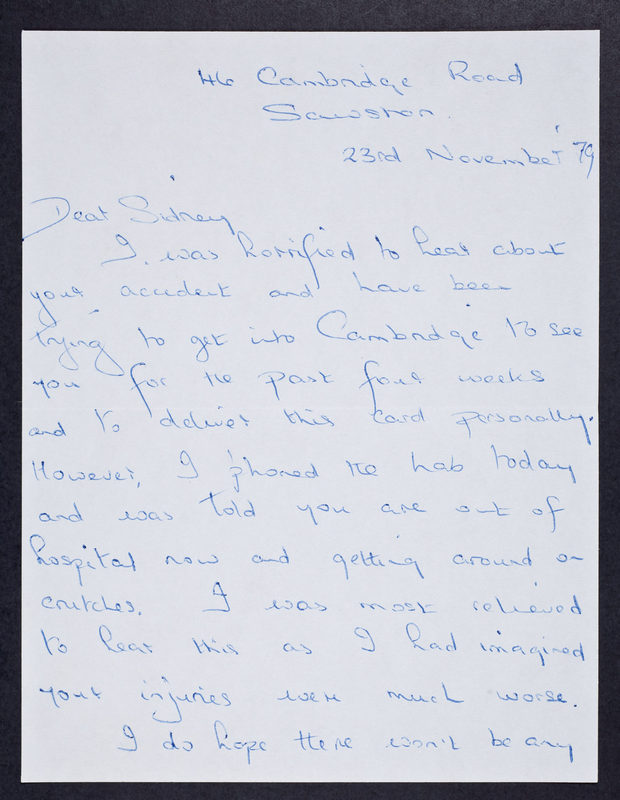 46 Cambridge Road
Sawston.
23rd November '79
Dear Sidney
I was horrified to hear about
your accident and have been
trying to get into Cambridge to see
you for the past four weeks
and to deliver this card personally.
However, I 'phoned the lab today
and was told you are out of
hospital now and getting around on
crutches. I was most relieved
to hear this as I had imagined
your injuries were much worse.
I do hope there won't be any